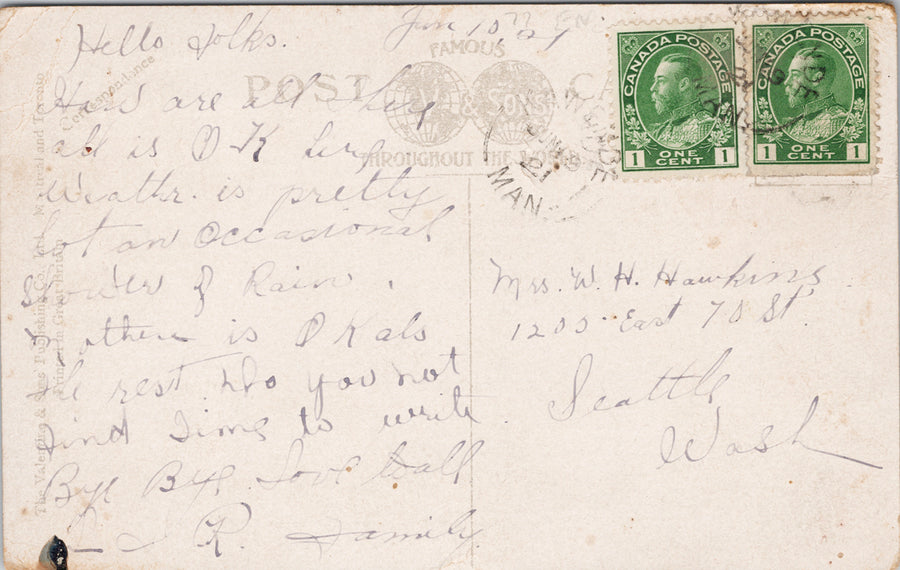 Hello Folks.
Jun 10th 21
How are all
all is O K here
Weathr. is pretty
Hot an Occasional
Shower of Rain.
Mother is O K als
the rest Do you not
find Time to write
Bye Bye Love to all
R. Family
Mrs. W. H. Hawkins
1205 East 70 St.
Seattle
Wash
FAMOUS
POST CA
& SONS
THROUGHOUT THE WORLD
Correspondance
The Valentine & Sons Publishing Co., Ltd., Montreal and Toronto
Printed in Great Britain
MAN
CANADA POSTAGE
1 ONE CENT 1
CANADA POSTAGE
1 ONE CENT 1